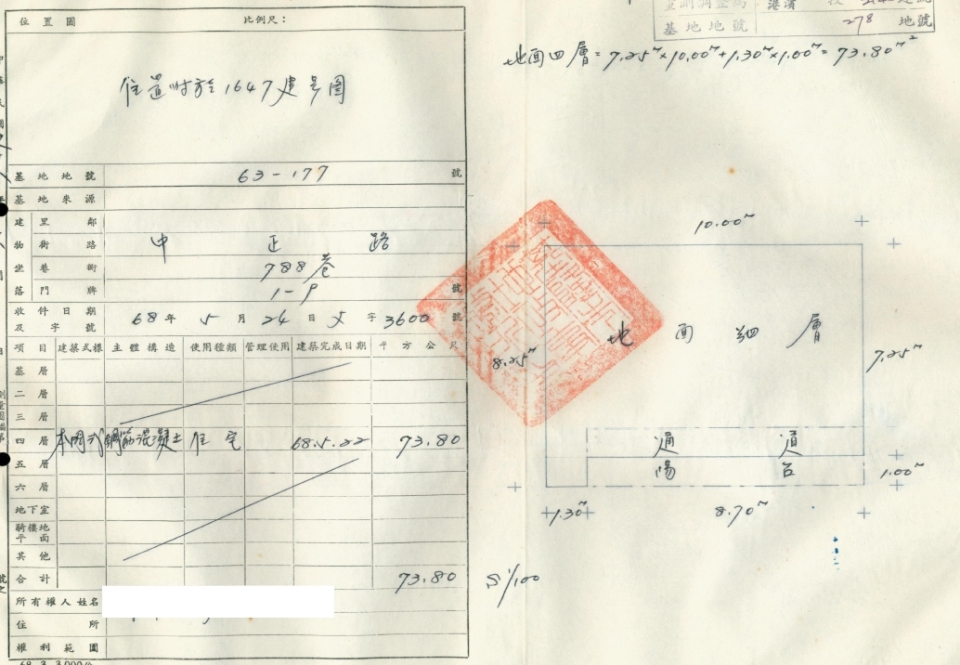 位置圖 比例尺：
位置附於1647建号图
基地地號 63-177 號
基地來源
建物坐落
里鄰
街路 中正路
巷衖 788巷
門牌 1-9 號
收件日期及字號 68年5月24日 字3600號
項目 建築式樣 主體構造 使用種類 管理使用 建築完成日期 平方公尺
基層
二層
三層
四層 本國式 鋼筋混凝土 住宅 68.5.22 73.80
五層
六層
地下室
騎樓地平面
其他
合計 73.80
所有權人姓名
住所
權利範圍
68.3.3,000份
港濱
基地地號 278 地號
地面四層=7.25ᵐ×10.00ᵐ+1.30ᵐ×1.00ᵐ=73.80ᵐ²
10.00ᵐ
地面四層
8.25ᵐ
7.25ᵐ
通道
陽台
1.00ᵐ
1.30ᵐ
8.70ᵐ
S 1/100